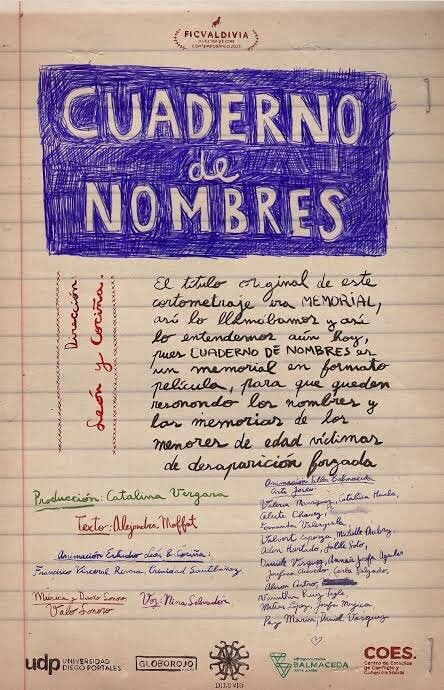 FICVALDIVIA
CUADERNO
de
NOMBRES
Dirección:
León y Cociña.
El título original de este
cortometraje era MEMORIAL,
así lo llamábamos y así
lo entendemos aún hoy,
pues CUADERNO DE NOMBRES es
un memorial en formato
película, para que queden
resonando los nombres y
las memorias de los
menores de edad víctimas
de desaparición forzada
Producción: Catalina Vergara
Texto: Alejandra Moffat
Animación Estudio León & Cociña:
Francisco Visceral Rivera, Trinidad Santibáñez
Música y Diseño Sonoro
Valo Sonoro
Voz: Nina Salvador
Animación Taller Balmaceda
Arte Joven
Valeria Manríquez, Catalina
Celeste Chávez,
Fernanda Valenzuela
Michelle
Hurtado, Solo,
Daniela Vásquez,
Acevedo Carla Salgado,
Castro,
Ruiz Tagle
López, Josefa Mujica,
Paz Marín, Daniel Vásquez
udp UNIVERSIDAD
DIEGO PORTALES
GLOBOROJO
DILUVIO
BALMACEDA
ARTE JOVEN
COES.
Centro de Estudios
de Conflicto y
Cohesión Social